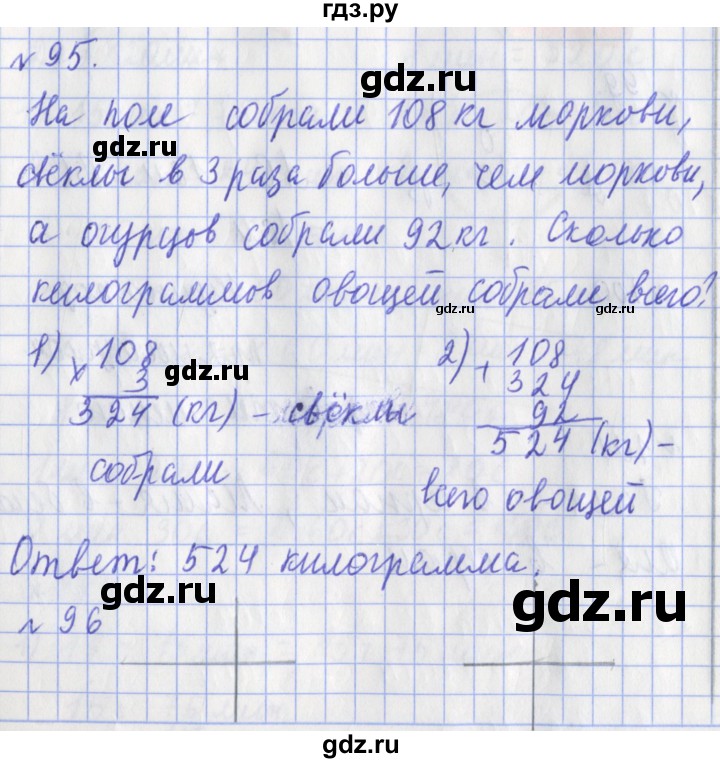 гдз.ру
№ 95.
gdz.ru
На поле собрали 108 кг моркови,
gdz.ru
свёклы в 3 раза больше, чем моркови,
gdz.ru
а огурцов собрали 92 кг. Сколько
килограммов овощей собрали всего?
gdz.ru gdz.ru
1) × 108
3
324 (кг) - свёклы
собрали
gdz.ru
2) + 108
324
92
524 (кг) -
всего овощей
gdz.ru
Ответ: 524 килограмма.
gdz.ru gdz.ru
№ 96
gdz.ru